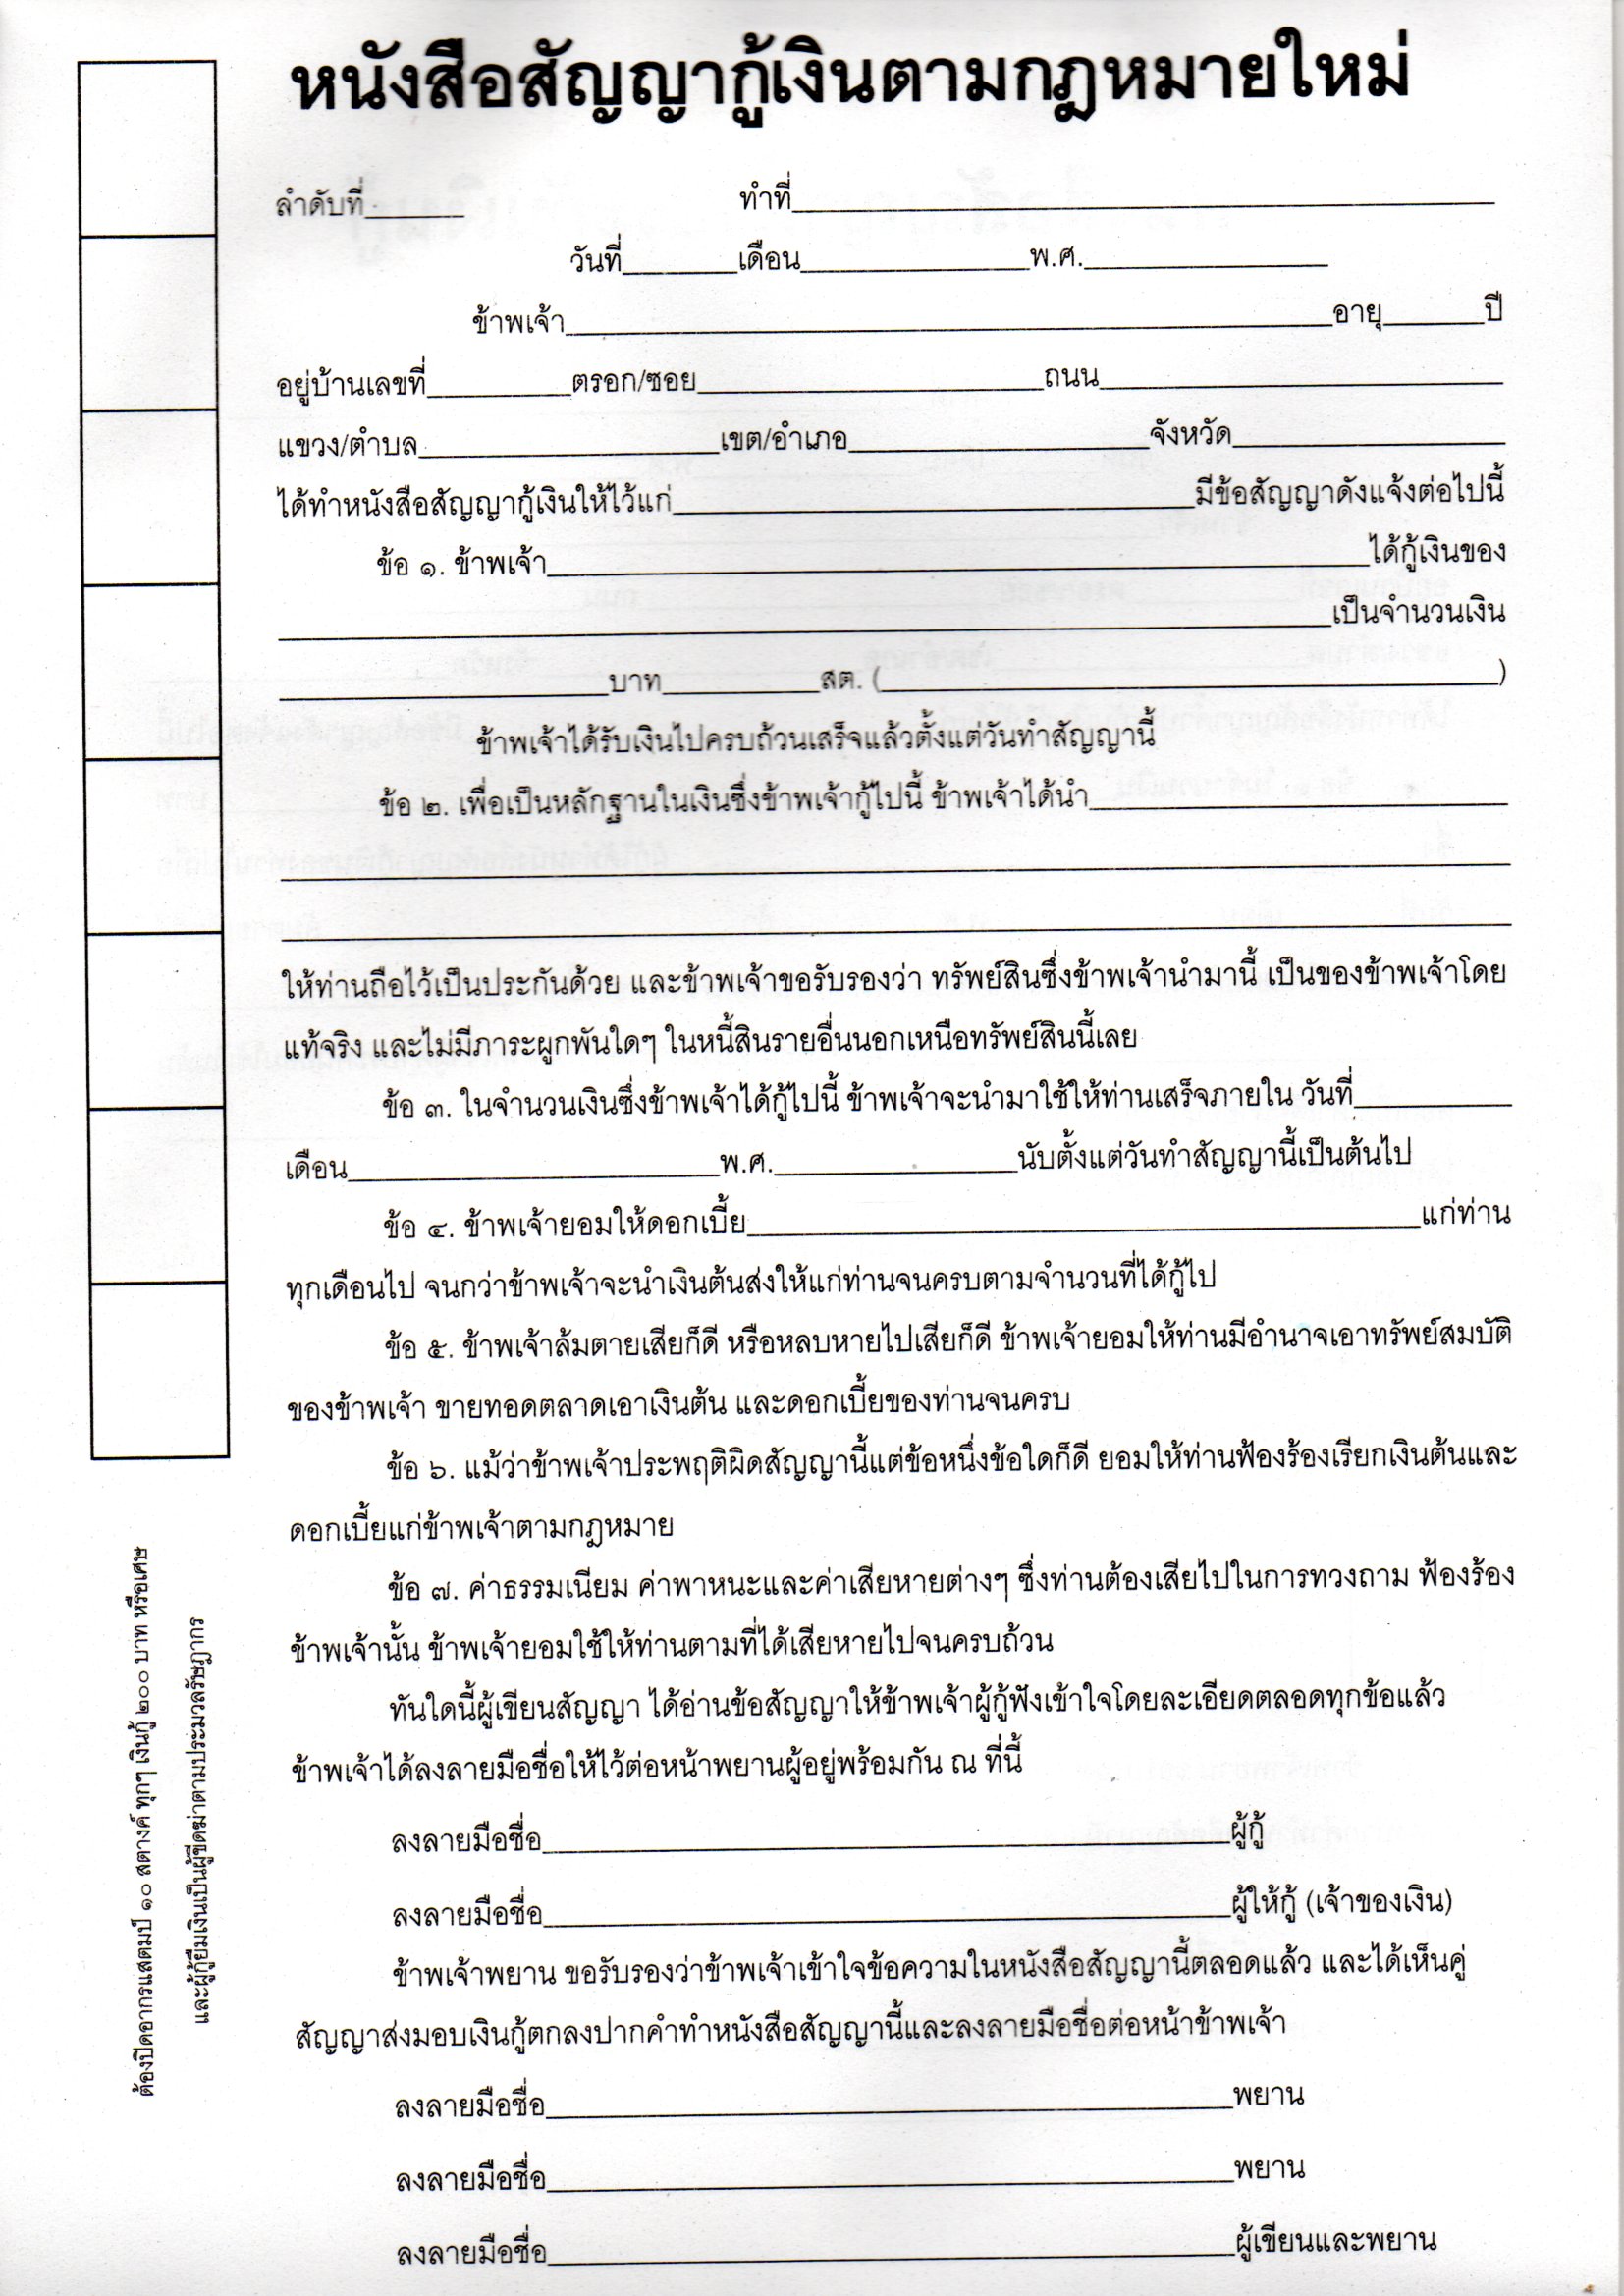 หนังสือสัญญากู้เงินตามกฎหมายใหม่
ลำดับที่______ ทำที่______
วันที่______เดือน______พ.ศ.______
ข้าพเจ้า______อายุ______ปี
อยู่บ้านเลขที่______ตรอก/ซอย______ถนน______
แขวง/ตำบล______เขต/อำเภอ______จังหวัด______
ได้ทำหนังสือสัญญากู้เงินให้ไว้แก่______มีข้อสัญญาดังแจ้งต่อไปนี้
ข้อ ๑. ข้าพเจ้า______ได้กู้เงินของ
______เป็นจำนวนเงิน
______บาท______สต. (______)
ข้าพเจ้าได้รับเงินไปครบถ้วนเสร็จแล้วตั้งแต่วันทำสัญญานี้
ข้อ ๒. เพื่อเป็นหลักฐานในเงินซึ่งข้าพเจ้ากู้ไปนี้ ข้าพเจ้าได้นำ______
ให้ท่านถือไว้เป็นประกันด้วย และข้าพเจ้าขอรับรองว่า ทรัพย์สินซึ่งข้าพเจ้านำมานี้ เป็นของข้าพเจ้าโดย
แท้จริง และไม่มีภาระผูกพันใดๆ ในหนี้สินรายอื่นนอกเหนือทรัพย์สินนี้เลย
ข้อ ๓. ในจำนวนเงินซึ่งข้าพเจ้าได้กู้ไปนี้ ข้าพเจ้าจะนำมาใช้ให้ท่านเสร็จภายใน วันที่______
เดือน______พ.ศ.______นับตั้งแต่วันทำสัญญานี้เป็นต้นไป
ข้อ ๔. ข้าพเจ้ายอมให้ดอกเบี้ย______แก่ท่าน
ทุกเดือนไป จนกว่าข้าพเจ้าจะนำเงินต้นส่งให้แก่ท่านจนครบตามจำนวนที่ได้กู้ไป
ข้อ ๕. ข้าพเจ้าล้มตายเสียก็ดี หรือหลบหายไปเสียก็ดี ข้าพเจ้ายอมให้ท่านมีอำนาจเอาทรัพย์สมบัติ
ของข้าพเจ้า ขายทอดตลาดเอาเงินต้น และดอกเบี้ยของท่านจนครบ
ข้อ ๖. แม้ว่าข้าพเจ้าประพฤติผิดสัญญานี้แต่ข้อหนึ่งข้อใดก็ดี ยอมให้ท่านฟ้องร้องเรียกเงินต้นและ
ดอกเบี้ยแก่ข้าพเจ้าตามกฎหมาย
ข้อ ๗. ค่าธรรมเนียม ค่าพาหนะและค่าเสียหายต่างๆ ซึ่งท่านต้องเสียไปในการทวงถาม ฟ้องร้อง
ข้าพเจ้านั้น ข้าพเจ้ายอมใช้ให้ท่านตามที่ได้เสียหายไปจนครบถ้วน
ทันใดนี้ผู้เขียนสัญญา ได้อ่านข้อสัญญาให้ข้าพเจ้าผู้กู้ฟังเข้าใจโดยละเอียดตลอดทุกข้อแล้ว
ข้าพเจ้าได้ลงลายมือชื่อให้ไว้ต่อหน้าพยานผู้อยู่พร้อมกัน ณ ที่นี้
ลงลายมือชื่อ______ผู้กู้
ลงลายมือชื่อ______ผู้ให้กู้ (เจ้าของเงิน)
ข้าพเจ้าพยาน ขอรับรองว่าข้าพเจ้าเข้าใจข้อความในหนังสือสัญญานี้ตลอดแล้ว และได้เห็นคู่
สัญญาส่งมอบเงินกู้ตกลงปากคำทำหนังสือสัญญานี้และลงลายมือชื่อต่อหน้าข้าพเจ้า
ลงลายมือชื่อ______พยาน
ลงลายมือชื่อ______พยาน
ลงลายมือชื่อ______ผู้เขียนและพยาน
ต้องปิดอากรแสตมป์ ๑๐ สตางค์ ทุกๆ เงินกู้ ๒๐๐ บาท หรือเศษ
และผู้กู้ยืมเงินเป็นผู้ขีดฆ่าตามประมวลรัษฎากร